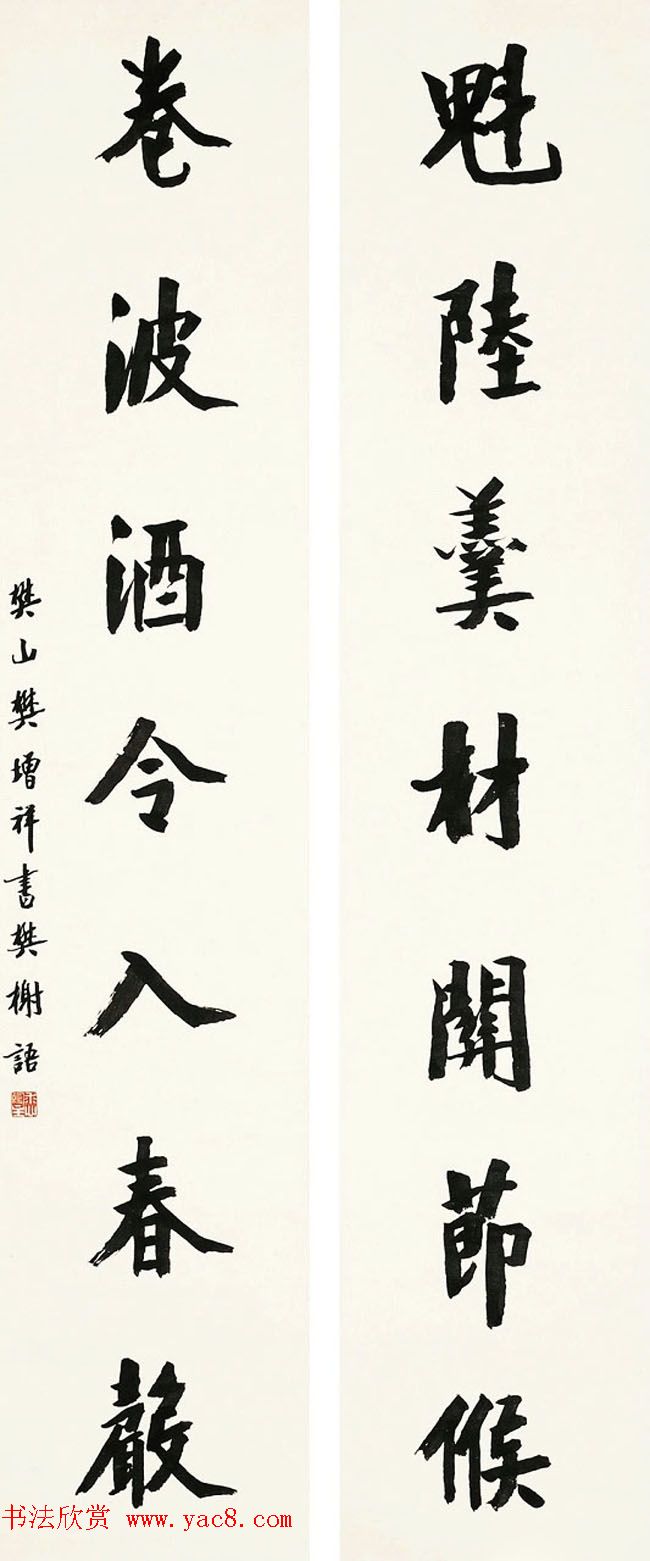 魁陸羹材關節候
卷波酒令入春聲
樊山樊增祥書樊榭語
书法欣赏 www.yac8.com